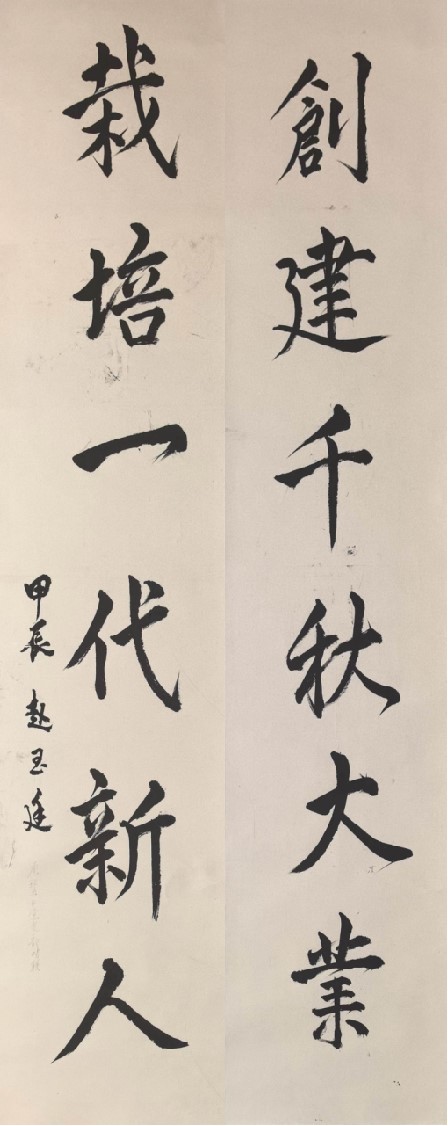 創建千秋大業
栽培一代新人
甲辰 赵玉廷